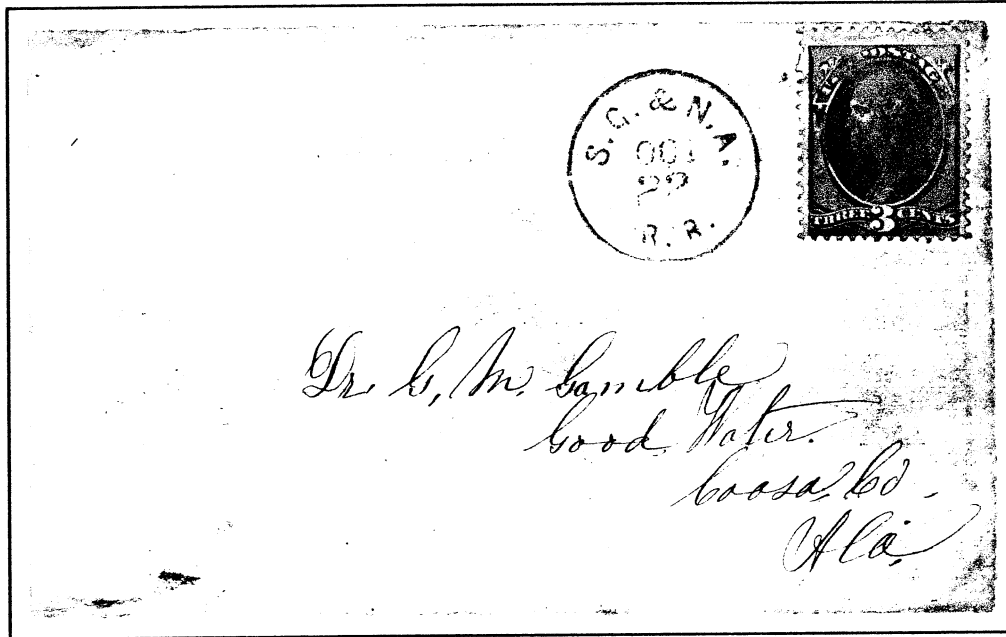 S. G. & N. A.
OCT
22
R. R.
U.S. POSTAGE
THREE 3 CENTS
Dr. G. M. Gamble
Good Water.
Coosa, Co.
Ala.